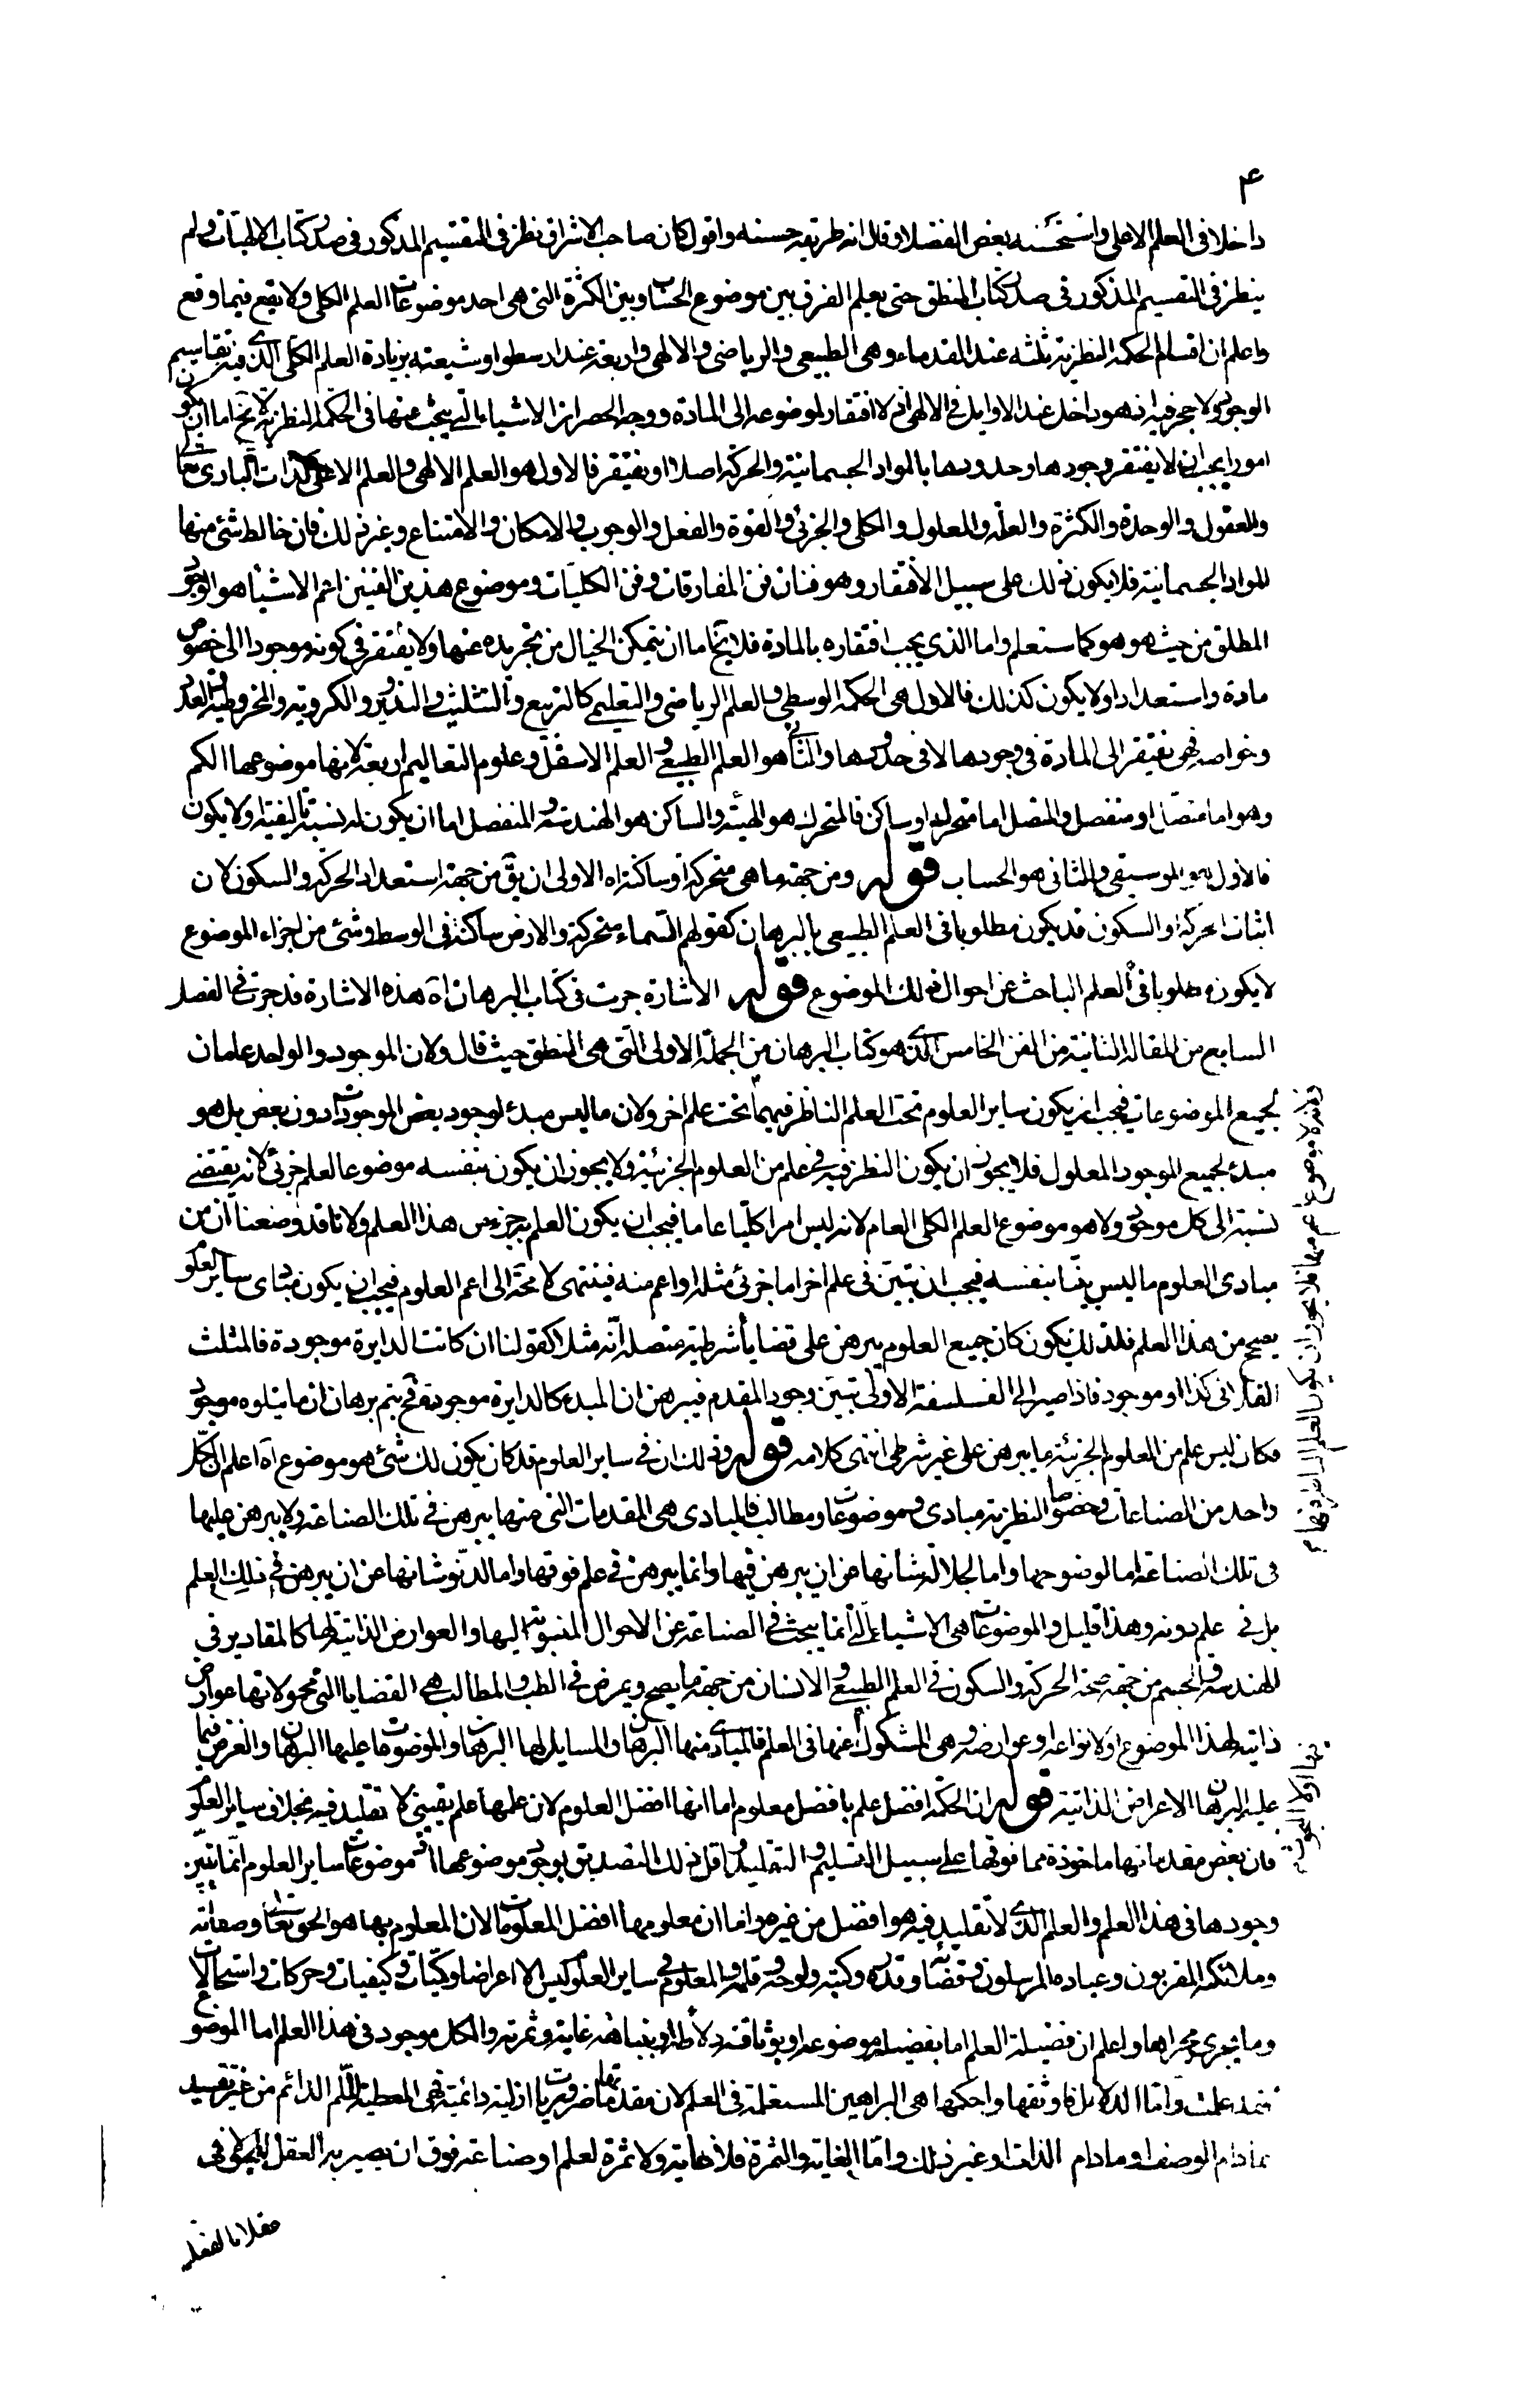 ۴
داخلا فى العلم الاعلى واستحسنه بعض الفضلا وقال انه طريقه حسنه واقول كان صاحب الاشراق نظر فى التقسيم المذكور فى صدر كتاب الالهيات ولم
ينظر فى التقسيم المذكور فى صدر كتاب المنطق حتى يعلم الفرق بين موضوع الحساب وبين الكثرة التى هى احد موضوعات العلم الكلى ولا يقع فيما وقع
واعلم ان اقسام الحكمة النظرية ثلثه عند القدماء وهى الطبيعى والرياضى والالهى واربعة عند ارسطو وشيعته بزيادة العلم الكلى الذى فيه تقاسيم
الوجود ولا حجر فيه انه هو داخل عند الاوايل فى الالهى اذ لا افتقار لموضوعه الى المادة ووجه الحصر ان الاشياء التى يبحث عنها فى الحكمة النظرية لا يخ اما ان يكون
امورا يجب ان لا يفتقر وجودها وحدودها بالمواد الجسمانية والحركة اصلا او يفتقر فالاول هو العلم الالهى والعلم الاعلى كذات البارى تعالى
والعقول والوحدة والكثرة والعلة والمعلول والكلى والجزئى والقوة والفعل والوجوب والامكان والامتناع وغير ذلك فان خالط شئ منها
المواد الجسمانية فلا يكون ذلك على سبيل الافتقار وهو فنان فن المفارقات وفن الكليات وموضوع هذين الفنين اعم الاشياء هو الوجود
المطلق من حيث هو هو كما ستعلم واما الذى يجب افتقاره بالمادة فلا يخ اما ان يتمكن الخيال من تجريده عنها ولا يفتقر فى كونه موجودا الى خصوص
مادة واستعداد اولا يكون كذلك فالاول هى الحكمة الوسطى والعلم الرياضى والتعليمى كالتربيع والتثليث والتدوير والكروية والمخروطية والعدد
وخواصه فهى تفتقر الى المادة فى وجودها لا فى حدودها والثانى هو العلم الطبيعى والعلم الاسفل وعلوم التعاليم اربعة لانها موضوعها الكم
وهو اما متصل او منفصل والمتصل اما متحرك او ساكن فالمتحرك هو الهيئة والساكن هو الهندسة والمنفصل اما ان يكون له نسبة تاليفية اولا يكون
فالاول هو الموسيقى والثانى هو الحساب قوله ومن جهة ما هى متحركة او ساكنة اه الاولى ان يق من جهة استعداد الحركة والسكون لان
اثبات الحركة او السكون قد يكون مطلوبا فى العلم الطبيعى بالبرهان كقولهم السماء متحركة والارض ساكنة فى الوسط وشئ من اجزاء الموضوع
لا يكون مطلوبا فى العلم الباحث عن احوال ذلك الموضوع قوله الاشارة جرت فى كتاب البرهان اه هذه الاشارة قد جرت فى الفصل
السابع من المقالة الثانية من الفن الخامس الذى هو كتاب البرهان من الجملة الاولى التى هى المنطق حيث قال ولان الموجود والواحد عامان
لجميع الموضوعات فيجب ان يكون ساير العلوم تحت العلم الناظر فيهما تحت علم اخر ولان ما ليس مبدء لوجود بعض الموجودات دون بعض بل هو
مبدء لجميع الموجود المعلول فلا يجوز ان يكون النظر فيه فى علم من العلوم الجزئية ولا يجوز ان يكون بنفسه موضوعا لعلم جزئى لانه يقتضى
نسبة الى كل موجود ولا هو موضوع العلم الكلى العام لانه ليس امرا كليا عاما فيجب ان يكون العلم به جزء من هذا العلم ولانا قد وضعنا ان من
مبادى العلوم ما ليس بينا بنفسه فيجب ان تبين فى علم اخر اما جزئى مثله او اعم منه فينتهى لا محة الى اعم العلوم فيجب ان يكون مبادى ساير العلوم
يصح من هذا العلم فلذلك يكون كان جميع العلوم يبرهن على قضايا شرطية متصلة انه مثلا كقولنا ان كانت الدايرة موجودة فالمثلث
الفلانى كذا او موجود فاذا صير الى الفلسفة الاولى تبين وجود المقدم فيبرهن ان المبدء كالدايرة موجودة فح يتم برهان ان ما يتلوه موجود
فكان ليس علم من العلوم الجزئية ما يبرهن على غير شرطى انتهى كلامه قوله وذلك ان فى ساير العلوم قد كان يكون لك شئ هو موضوع اه اعلم ان لكل
واحد من الصناعات وخصوصا النظرية مبادى وموضوعات ومطالب فالمبادى هى المقدمات التى منها يبرهن فى تلك الصناعة ولا يبرهن عليها
فى تلك الصناعة اما لوضوحها واما لجلالة شأنها عن ان يبرهن فيها وانما يبرهن فى علم فوقها واما لدنو شانها عن ان يبرهن فى ذلك العلم
بل فى علم دونه وهذا قليل والموضوعات هى الاشياء التى انما يبحث فى الصناعة عن الاحوال المنسوبة اليها والعوارض الذاتية لها كالمقادير فى
الهندسة والجسم من جهة صحة الحركة والسكون فى العلم الطبيعى والانسان من جهة ما يصح ويمرض فى الطب والمطالب هى القضايا التى محمولاتها عوارض
ذاتية لهذا الموضوع او لانواعه وعوارضه وهى المشكوك عنها فى العلم فالمبادى منها البرهان والمسايل لها البرهان والموضوعات عليها البرهان والغرض فيما
عليه البرهان الاعراض الذاتية قوله ان الحكمة افضل علم بافضل معلوم اما انها افضل العلوم لان علمها علم يقينى لا تقليد فيه بخلاف ساير العلوم
فان بعض مقدماتها ماخوذة مما فوقها على سبيل التسليم والتقليد واقل ذلك التصديق بوجود موضوعها اذ موضوعات ساير العلوم انما تبين
وجودها فى هذا العلم والعلم الذى لا تقليد فيه هو افضل من غيره واما ان معلومها افضل المعلومات لان المعلوم بها هو الحق تعالى وصفاته
وملائكته المقربون وعباده المرسلون وقضائه وقدره وكتبه ولوحه وقلمه والمعلوم فى ساير العلوم ليس الا اعراضا وكميات وكيفيات وحركات واستحالات
وما يجرى مجراها واعلم ان فضيلة العلم اما بفضيلة موضوعه او بوثاقة دلائله او بنباهة غايته وثمرته والكل موجود فى هذا العلم اما الموضوع
فقد علمت واما الدلايل فاوثقها واحكمها هى البراهين المستعملة فى العلم لان مقدماتها ضروريات ازلية دائمية فهى المعطية للّم الدائم من غير تقييد
بمادام الوصف او مادام الذات او غير ذلك واما الغاية والثمرة فلا غاية ولا ثمرة لعلم او صناعة فوق ان يصير به العقل